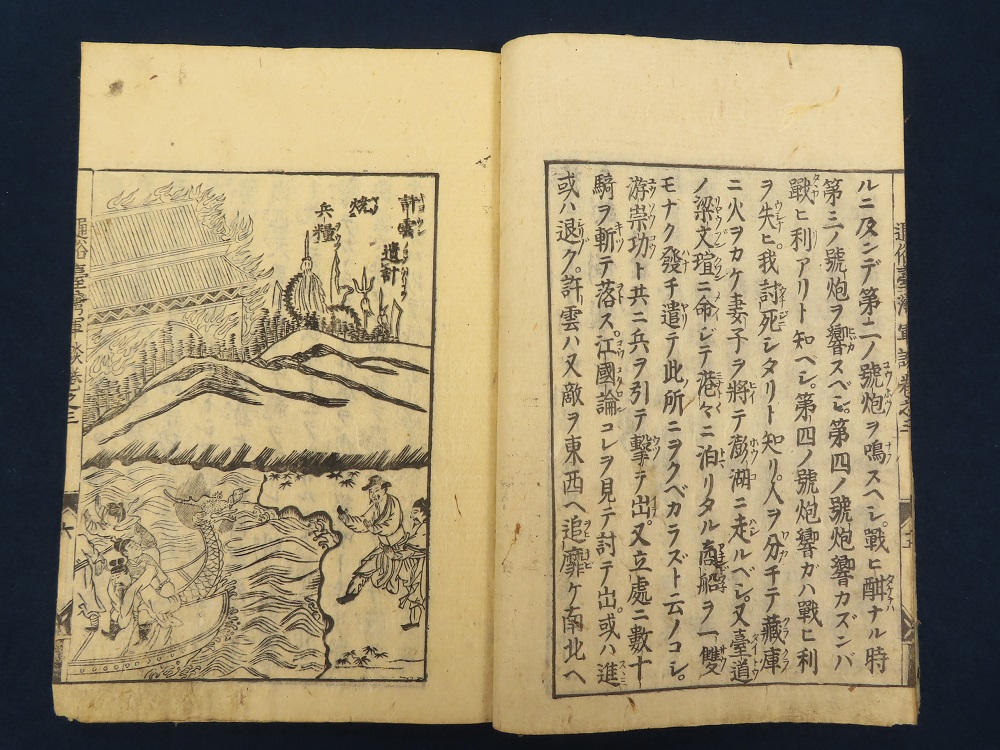 ルニ及ンデ第二ノ號炮ヲ鳴スヘシ。戰ヒ酣ナル時
第三ノ號炮ヲ響スベシ。第四ノ號炮響カズンバ
戰ヒ利アリト知ベシ。第四ノ號炮響カハ戰ヒ利
ヲ失ヒ。我討死シタリト知リ。人ヲ分チテ藏庫
ニ火ヲカケ妻子ヲ將テ澎湖ニ走ルベシ。又臺道
ノ梁文瑄ニ命ジテ港々ニ泊リタル商船ヲ一雙
モナク發チ遣テ此所ニヲクベカラズト云ノコシ。
游崇功ト共ニ兵ヲ引テ擊テ出。又立處ニ數十
騎ヲ斬テ落ス。江國論コレヲ見テ討テ出。或ハ進
或ハ退ク。許雲ハ又敵ヲ東西ヘ追靡ケ南北ヘ
通俗臺灣軍談卷之三
許雲
遺計
焼
兵糧
通俗臺灣軍談卷之三
六